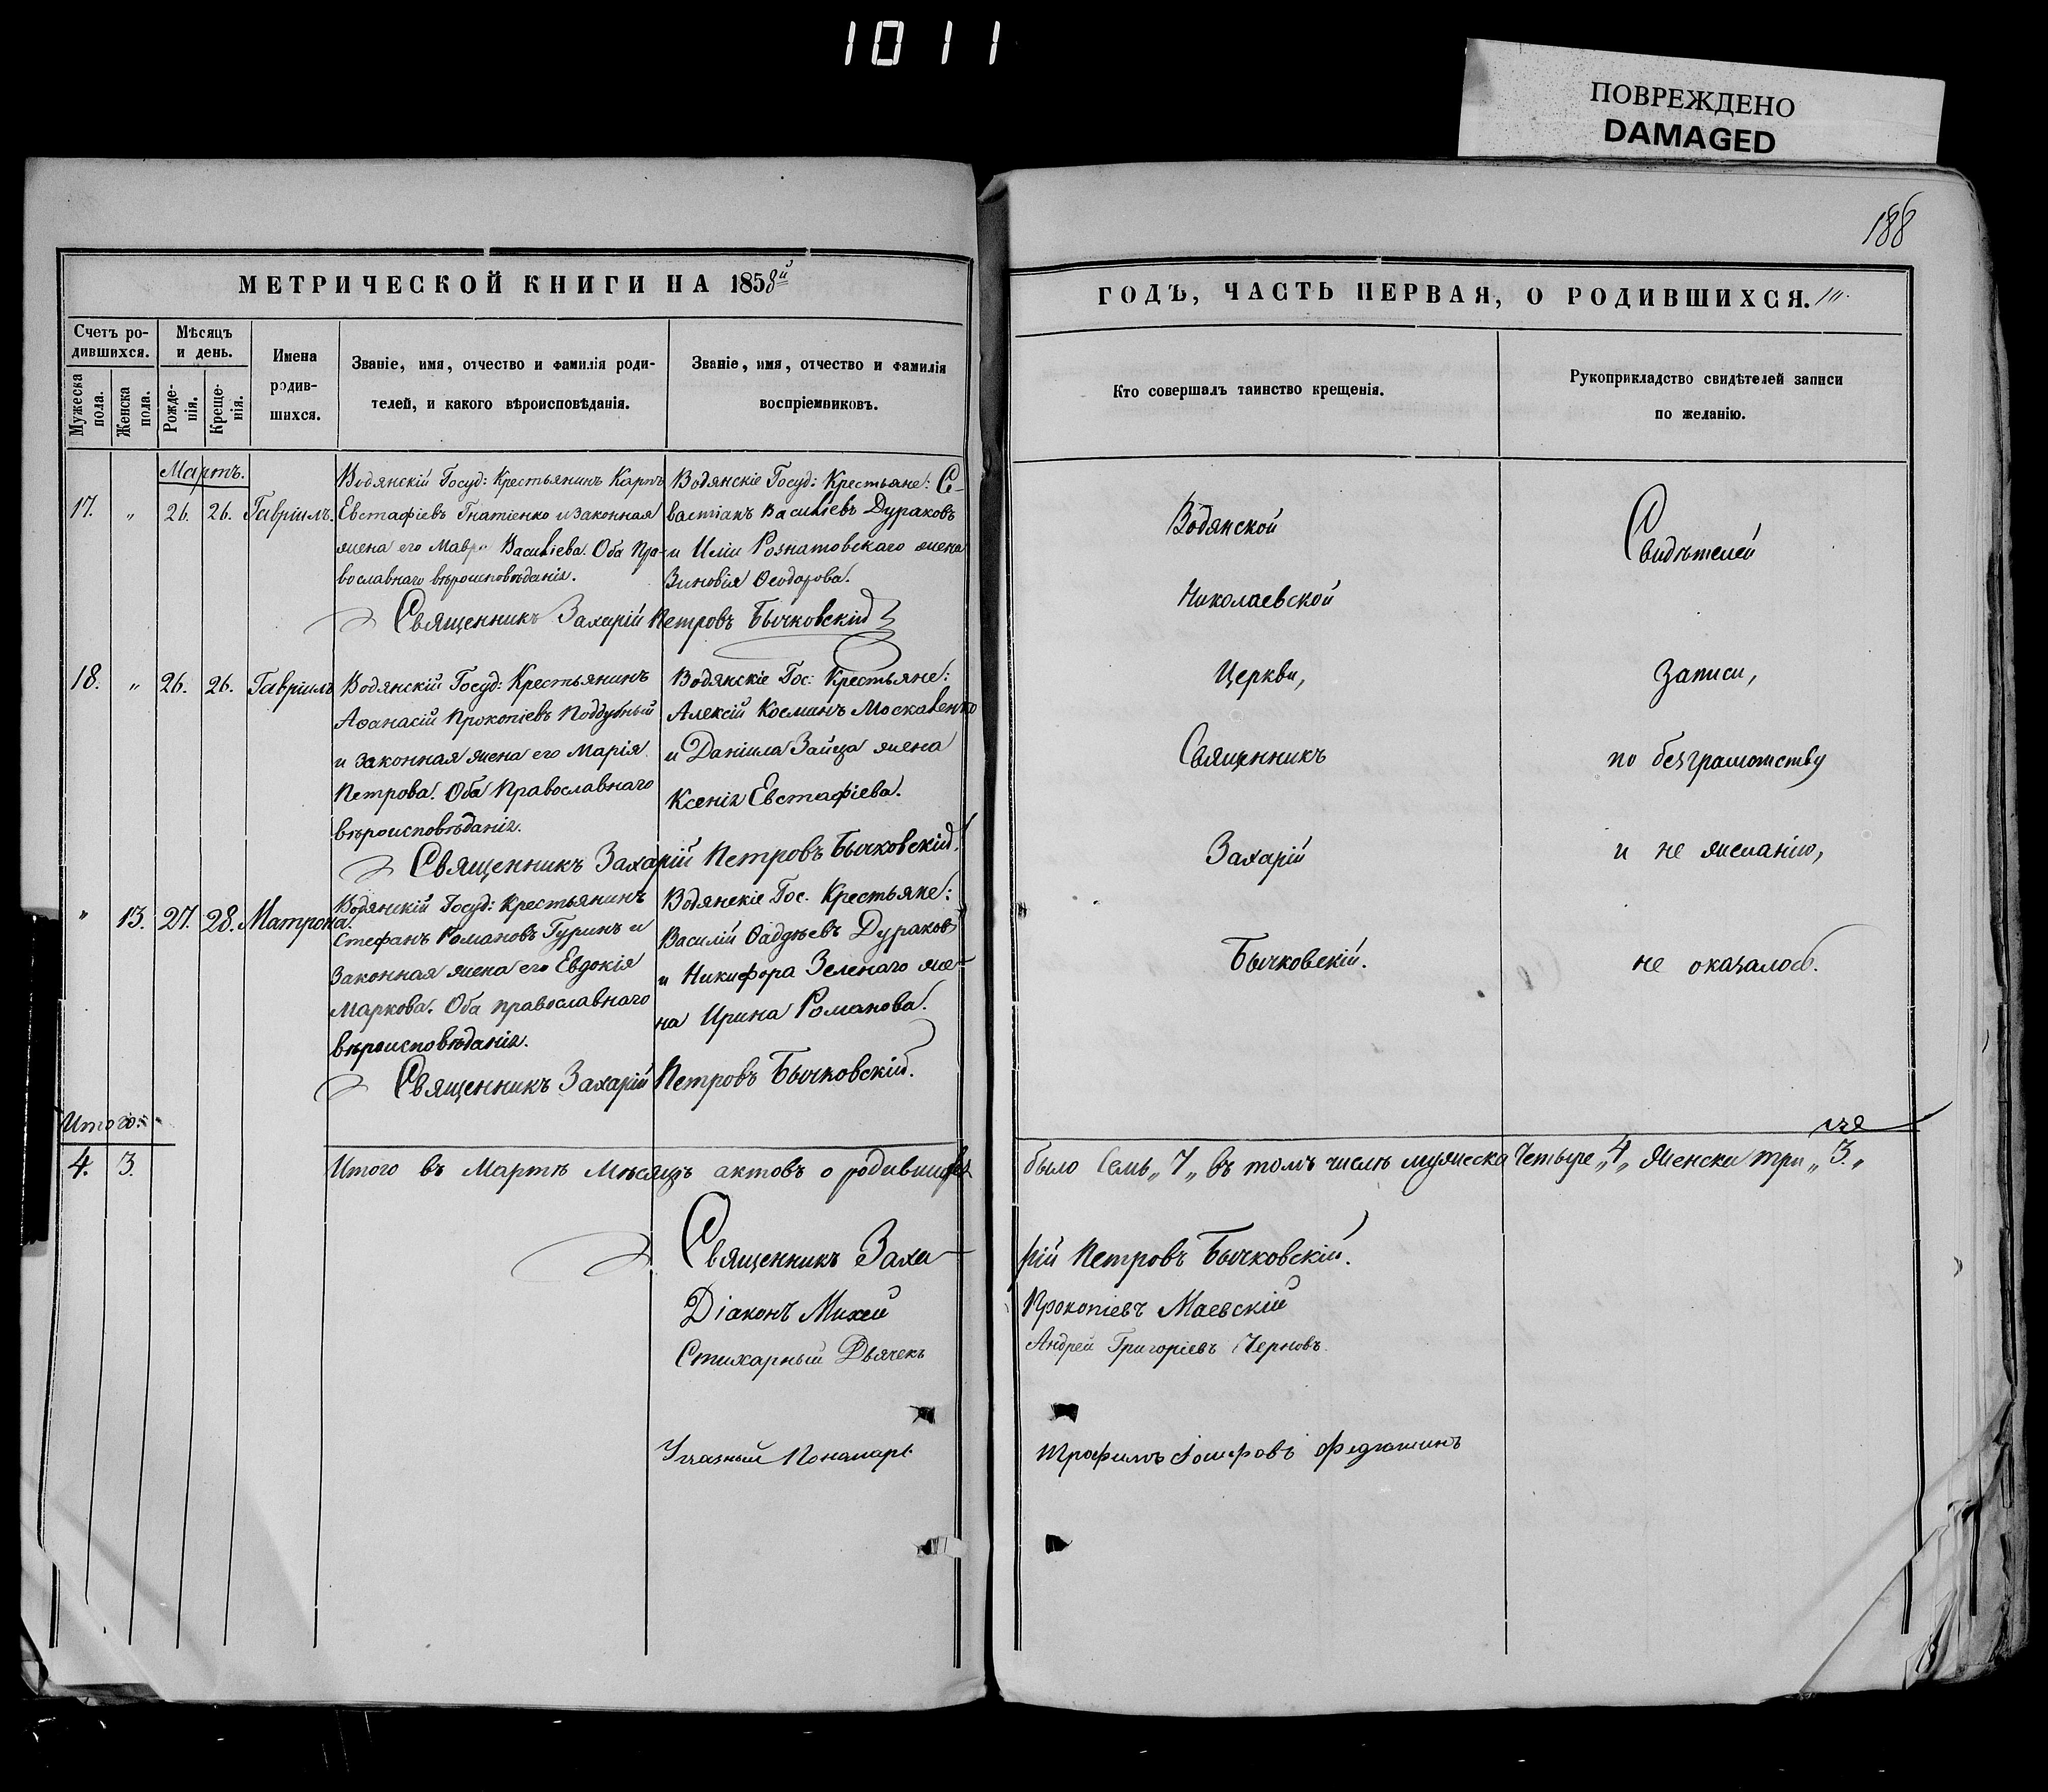 1011
ПОВРЕЖДЕНО
DAMAGED
188
МЕТРИЧЕСКОЙ КНИГИ НА 1858й
Счетъ ро-
дившихся.
Мужеска
пола.
Женска
пола.
Мѣсяцъ
и день.
Рожде-
нія.
Креще-
нія.
Имена
родив-
шихся.
Званіе, имя, отчество и фамилія роди-
телей, и какого вѣроисповѣданія.
Званіе, имя, отчество и фамилія
воспріемниковъ.
Мартъ.
17. „ 26. 26. Гавріилъ.
Водянскій Госуд: Крестьянинъ Карпъ
Евстафіевъ Гнатіенко и законная
жена его Мавра Васильева. Оба Пра-
вославнаго вѣроисповѣданія.
Водянскіе Госуд: Крестьяне: Се-
вастіанъ Васильевъ Дураковъ
и Иліи Рознатовскаго жена
Зиновія Ѳеодорова.
Священникъ Захарій Петровъ Бычковскій
18. „ 26. 26. Гавріилъ
Водянскій Госуд: Крестьянинъ
Аѳанасій Прокопіевъ Поддубный
и законная жена его Марія
Петрова. Оба Православнаго
вѣроисповѣданія.
Водянскіе Гос: Крестьяне:
Алексій Косминъ Москаленко
и Даніила Зайца жена
Ксенія Евстафіева.
Священникъ Захарій Петровъ Бычковскій.
„ 13. 27. 28. Матрона.
Водянскій Госуд: Крестьянинъ
Стефанъ Романовъ Гуринъ и
законная жена его Евдокія
Маркова. Оба православнаго
вѣроисповѣданія.
Водянскіе Гос. Крестьяне:
Василій Ѳаддѣевъ Дураковъ
и Никифора Зеленаго же-
на Ирина Романова.
Священникъ Захарій Петровъ Бычковскій.
Итого:
4. 3.
Итого въ Мартѣ Мѣсяцѣ актовъ о родившихся
Священникъ Заха-
Діаконъ Михей
Стихарный Дьячекъ
Указный Пономарь
ГОДЪ, ЧАСТЬ ПЕРВАЯ, О РОДИВШИХСЯ.
Кто совершалъ таинство крещенія.
Рукоприкладство свидѣтелей записи
по желанію.
Водянской
Николаевской
Церкви,
Священникъ
Захарій
Бычковскій.
Свидѣтелей
записи,
по безграмотству
и не желанію,
не оказалось.
было Семь „7„ въ томъ числѣ мужеска Четыре „4„ Женска три „3.„
рій Петровъ Бычковскій.
Прокопіевъ Маевскій
Андрей Григоріевъ Черновъ.
Трофимъ Іосифовъ